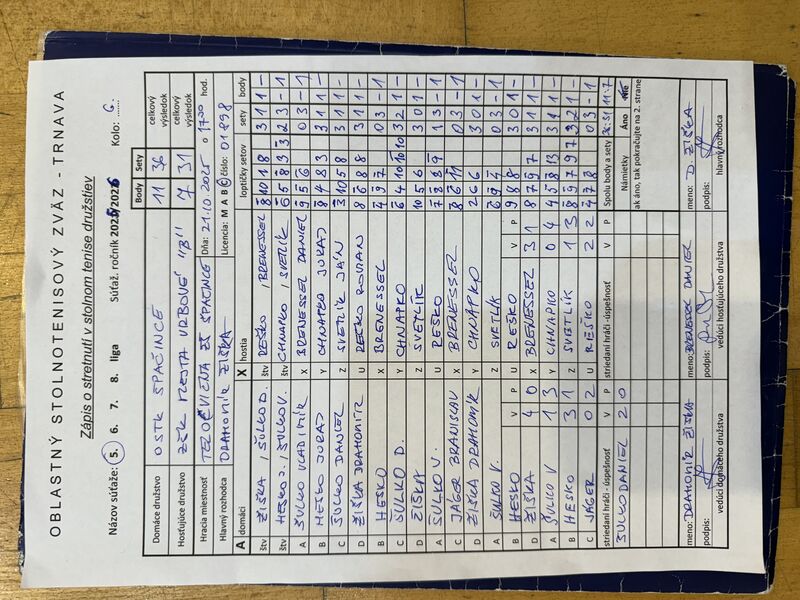 OBLASTNÝ STOLNOTENISOVÝ ZVÄZ - TRNAVA
Zápis o stretnutí v stolnom tenise družstiev
Názov súťaže: 5. 6. 7. 8. liga Súťaž. ročník 2025/2026 Kolo: 6.
Body Sety
Domáce družstvo OSTK ŠPAČINCE 11 36 celkový výsledok
Hosťujúce družstvo VRBOVÉ "B" 7 31 celkový výsledok
Hracia miestnosť ZŠ ŠPAČINCE Dňa: 21.10 2025 o 17.00 hod.
Hlavný rozhodca DRAHOMÍR ŽIŠKA Licencia: M A B C číslo: 01898
A domáci X hostia loptičky setov sety body
štv ŽIŠKA / ŠULKO D. štv REŠKO / BRENESSEL 8 10 1 8 3 1 1 -
štv HESKO J. / ŠULKO V. štv CHNAPKO / SVETLÍK
A ŠULKO VLADIMÍR X BRENESSEL DANIEL 9 5 6 0 3 - 1
B HESKO JURAJ Y CHNAPKO JURAJ 9 4 8 3 3 1 1 -
C ŠULKO DANIEL Z SVETLÍK JÁN 3 10 5 8 3 1 1 -
D ŽIŠKA DRAHOMÍR U REŠKO 8 6 8 8 3 1 1 -
B HESKO X BRENESSEL 4 9 7 0 3 - 1
C ŠULKO D. Y CHNAPKO 6 4 10 10 10 3 2 1 -
D ŽIŠKA Z SVETLÍK 10 5 6 3 0 1 -
A ŠULKO V. U REŠKO 7 8 8 9 1 3 - 1
C JÁGER BRANISLAV X BRENESSEL 0 3 - 1
D ŽIŠKA DRAHOMÍR Y CHNAPKO 2 6 6 3 0 1 -
A ŠULKO V. Z SVETLÍK 0 3 - 1
B HESKO V P U REŠKO V P 9 8 8 3 0 1 -
D ŽIŠKA 4 0 X BRENESSEL 3 1 8 7 9 7 3 1 1 -
A ŠULKO V 1 3 Y CHNAPKO 0 4
B HESKO 3 1 Z SVETLÍK 1 3
C JÁGER 0 2 U REŠKO 2 2 4 7 8 0 3 - 1
striedaní hráči - úspešnosť striedaní hráči - úspešnosť Spolu body a sety 36:31 11:7
ŠULKO DANIEL 2 0 Námietky Áno Nie
ak áno, tak pokračujte na 2. strane
meno: DRAHOMÍR ŽIŠKA meno: BRENESSEL DANIEL meno: D ŽIŠKA
podpis: podpis: podpis:
vedúci domáceho družstva vedúci hosťujúceho družstva hlavný rozhodca